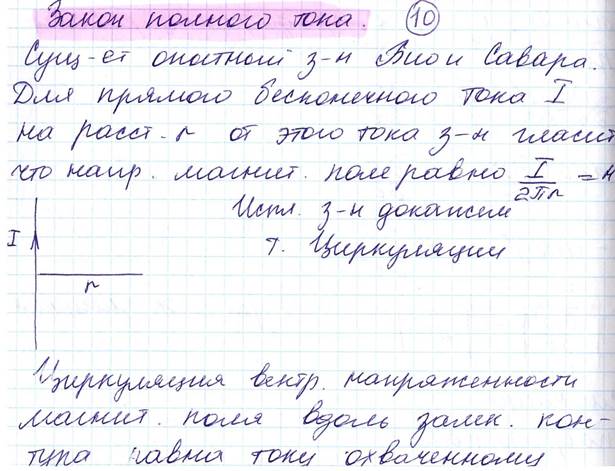 Закон полного тока. 10
Сущ-ет опытный з-н Био и Савара.
Для прямого бесконечного тока I
на расст. r от этого тока з-н гласит
что напр. магнит. поле равно I/2πr = H
Исп. з-н докажем
I т. Циркуляции
r
Циркуляция вектр. напряженности
магнит. поля вдоль замк. кон-
тура равна току охваченному